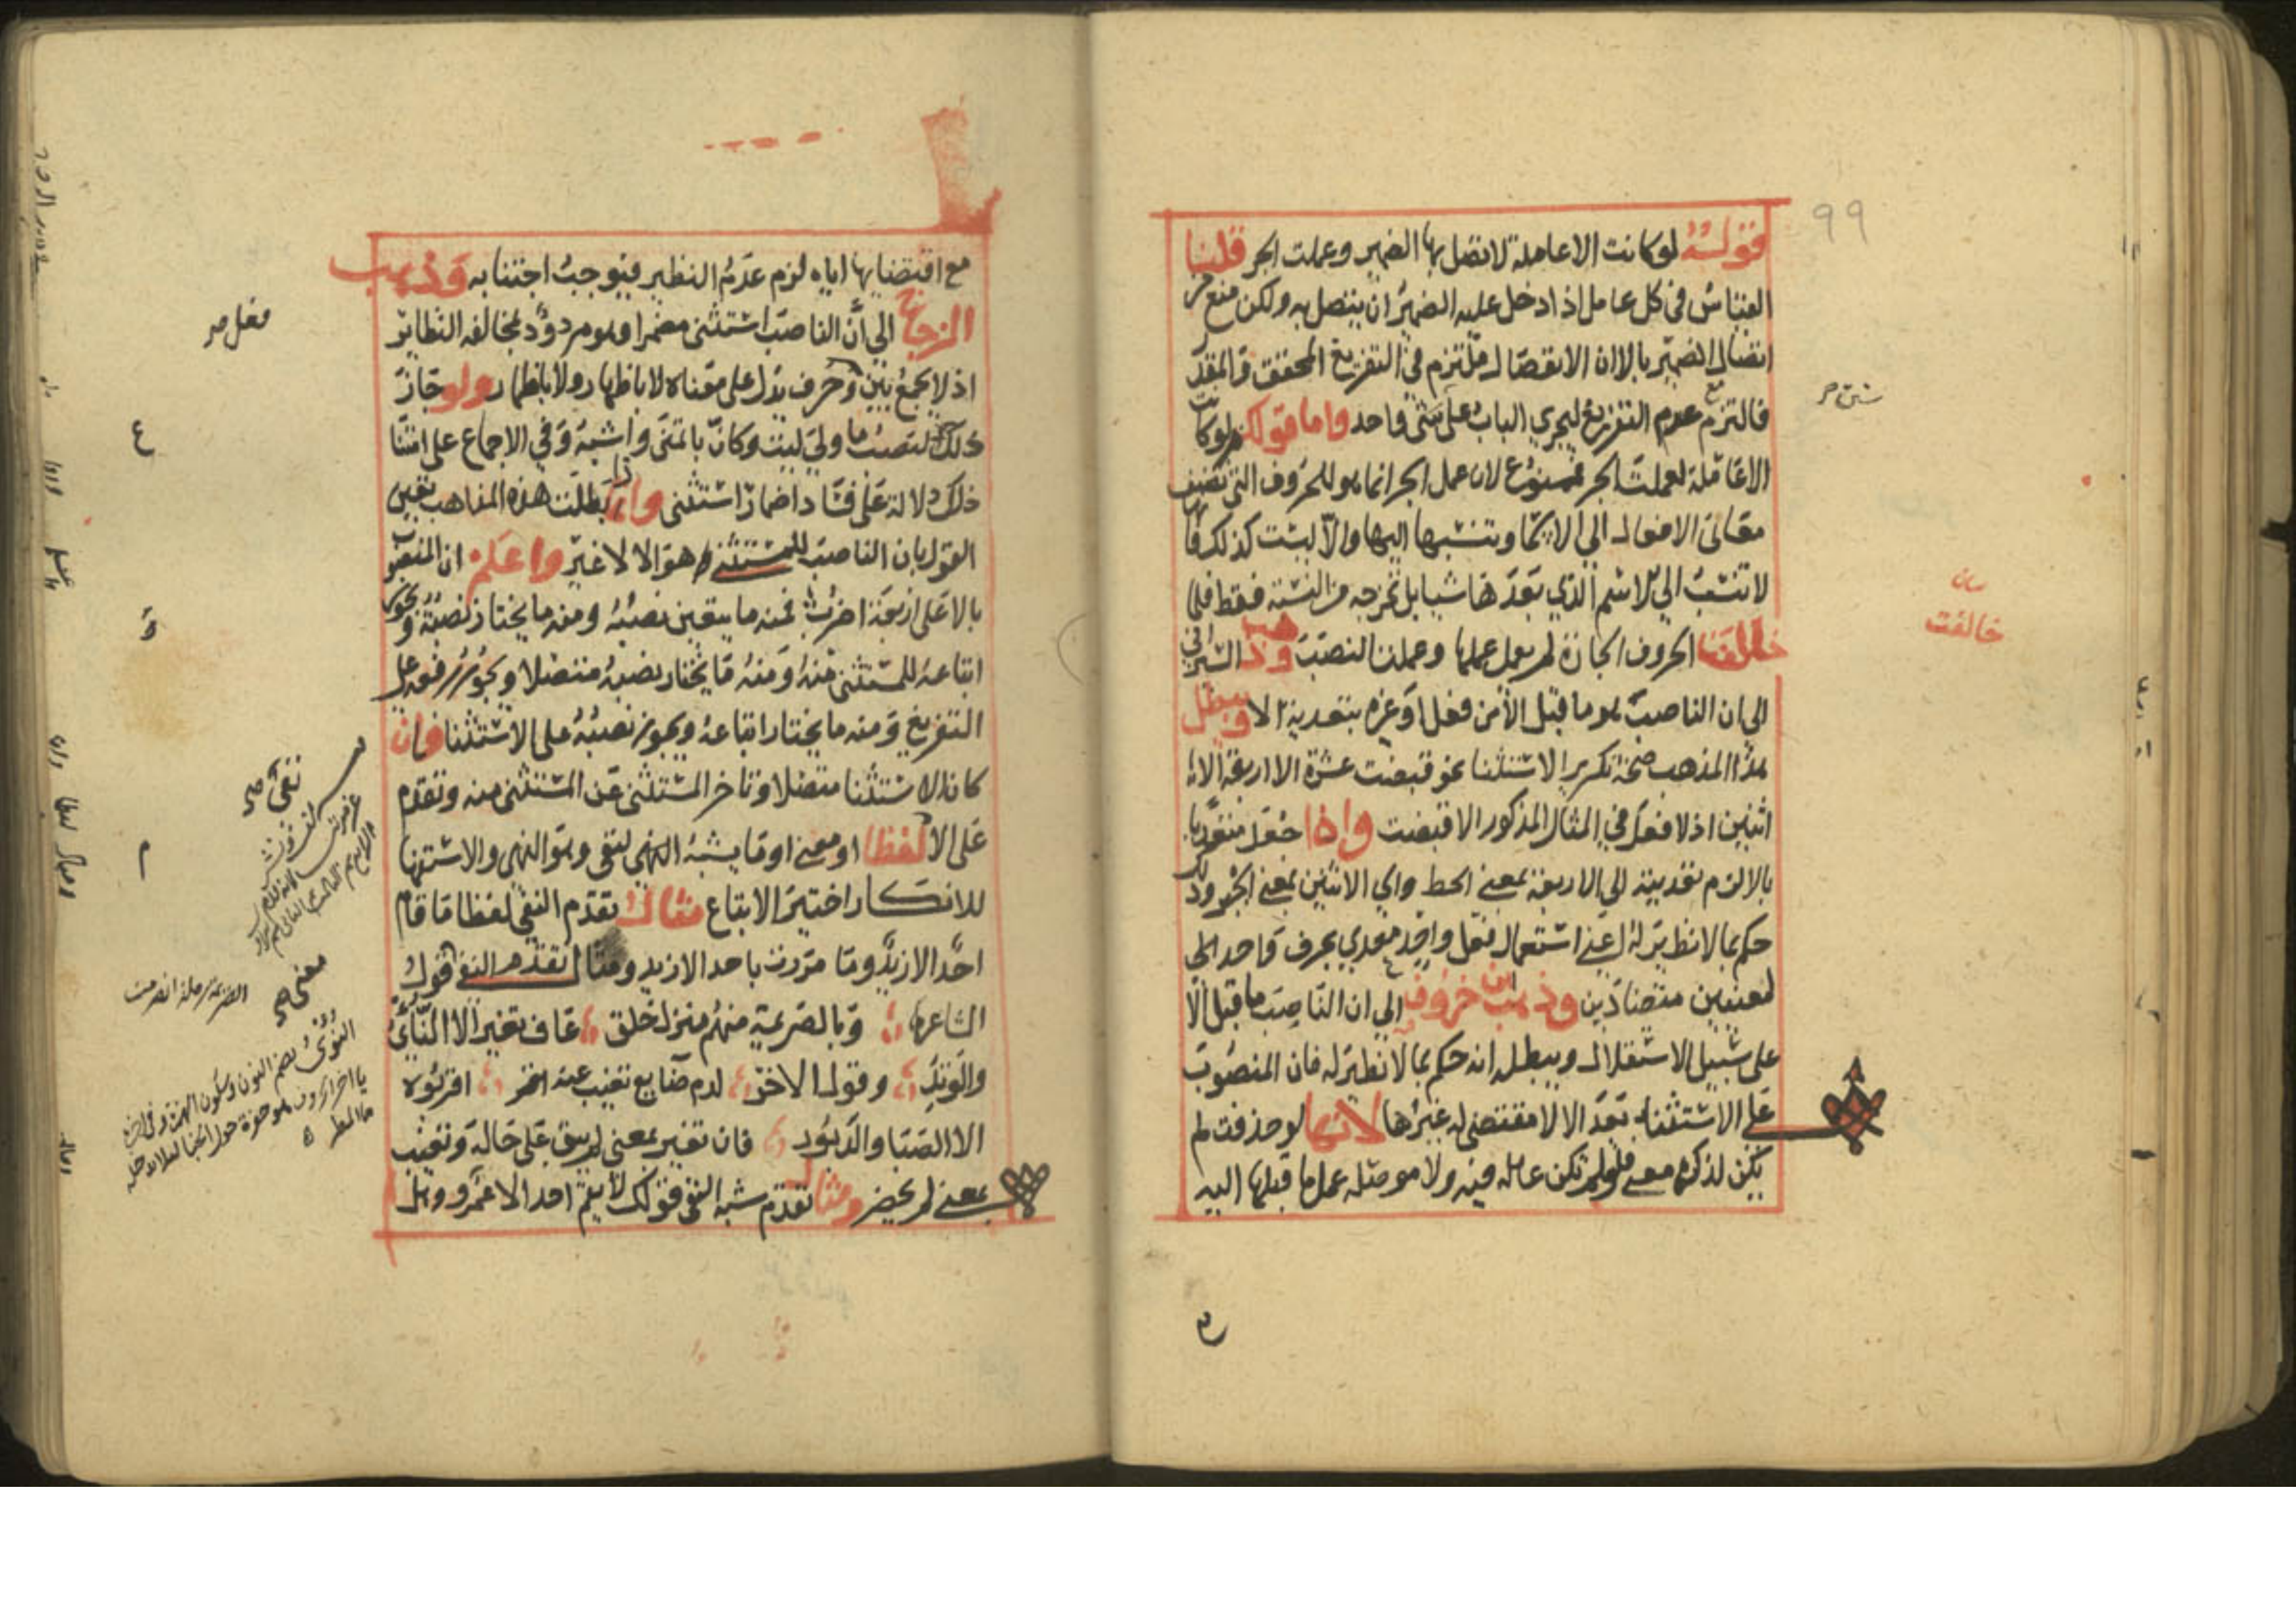 99
قولهُ لو كانت الا عاملة لاتصل بها الضمير وعملت الجر قلنا
القياس في كل عامل اذا دخل عليه الضمير ان يتصل به ولكن منع من
اتصال الضمير بالا ان الانفصال ملتزم في التفريغ المحقق والمقدر
فالتزم مع عدم التفريغ ليجري الباب على سنن واحد واما قولك لو كانت
الا عاملة لعملت الجر فممنوع لان عمل الجر انما هو للحروف التي تضيف
معاني الافعال الى الاسما وتنسبها اليها والا ليست كذلك فانها
لا تنسب الى الاسم الذي بعدها شيا بل تخرجه من النسبة فقط فلما
خالفت الحروف الجارة لم يعمل عملها وعملت النصب وذهب السيرافي
الى ان الناصب هو ما قبل الا من فعل او غيره بتعدية الا ويبطل
هذا المذهب صحة تكرير الاستثنا نحو قبضت عشرة الا اربعة الا
اثنين اذ لا فعل في المثال المذكور الا قبضت واذا جعل متعديا
بالا لزم تعديته الى الاربعة بمعنى الحط والى الاثنين بمعنى الجبر وذلك
حكم بما لا نظير له اعني استعمال فعل واحد معدي بحرف واحد الى
لمعنيين متضادين وذهب ابن خروف الى ان الناصب ما قبل الا
على سبيل الاستقلال ويبطله انه حكم بما لا نظير له فان المنصوب
على الاستثناء بعد الا لا مقتضى له غيرها لانها لو حذفت لم
يكن لذكره معنى فلو لم تكن عاملة فيه ولا موصلة عمل ما قبلها اليه
خالفت
مع اقتضايها اياه لزم عدم النظير فيوجب اجتنابه وذهب
الزجاج الى أن الناصب استثنى مضمرا وهو مردود بمخالفة النظاير
اذ لا يجمع بين فعل وحرف يدل على معناه لا باظهار ولا باظهار ولو جاز
ذلك لنصب ما ولي ليت وكان بالتمنى واشبه وفي الاجماع على امتناع
ذلك دلالة على فساد اضمار استثنى واذا بطلت هذه المذاهب تعين
القول بان الناصب للمستثنى هو الا لا غير واعلم ان المنصوب
بالا على اربعة اضرب فمنه ما يتعين نصبه ومنه ما يختار نصبه ويجوز
اتباعه للمستثنى منه ومنه ما يختار نصبه متصلا ويجوز رفعه على
التفريغ ومنه ما يختار اتباعه ويجوز نصبه على الاستثنا فان
كان الاستثنا متصلا وتاخر المستثنى عن المستثنى منه وتقدم
على الا لفظا او معنى او ما يشبه النهي لنفي وهو النهي والاستفهام
للانكار اختير الاتباع مثال تقدم النفي لفظا ما قام
احد الا زيد وما مررت باحد الا زيد ومثال تقدم النفي قول
الشاعر وبالصريمة منهم منزل خلق عاف تغير الا النأي
والوتد وقول الاخر لدم ضايع تغيب عنه اقربوه
الا الصبا والدبور فان تغير بمعنى لم يبق على حاله وتغيب
بمعنى لم يحضر ومثال تقدم شبه النفي قولك لا يقم احد الا عمرو وهل
فعل
ع
م
نفى
معنى
الصريمة
النؤى بضم النون وسكون الهمزة